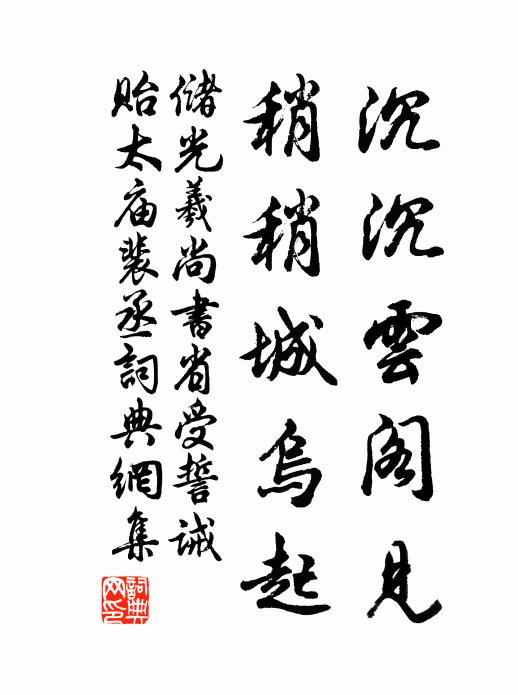 沉沉雲閣見
稍稍城烏起
儲光羲尚書省受誓誡
貽太庙裴丞詞典網集
詞典
网印